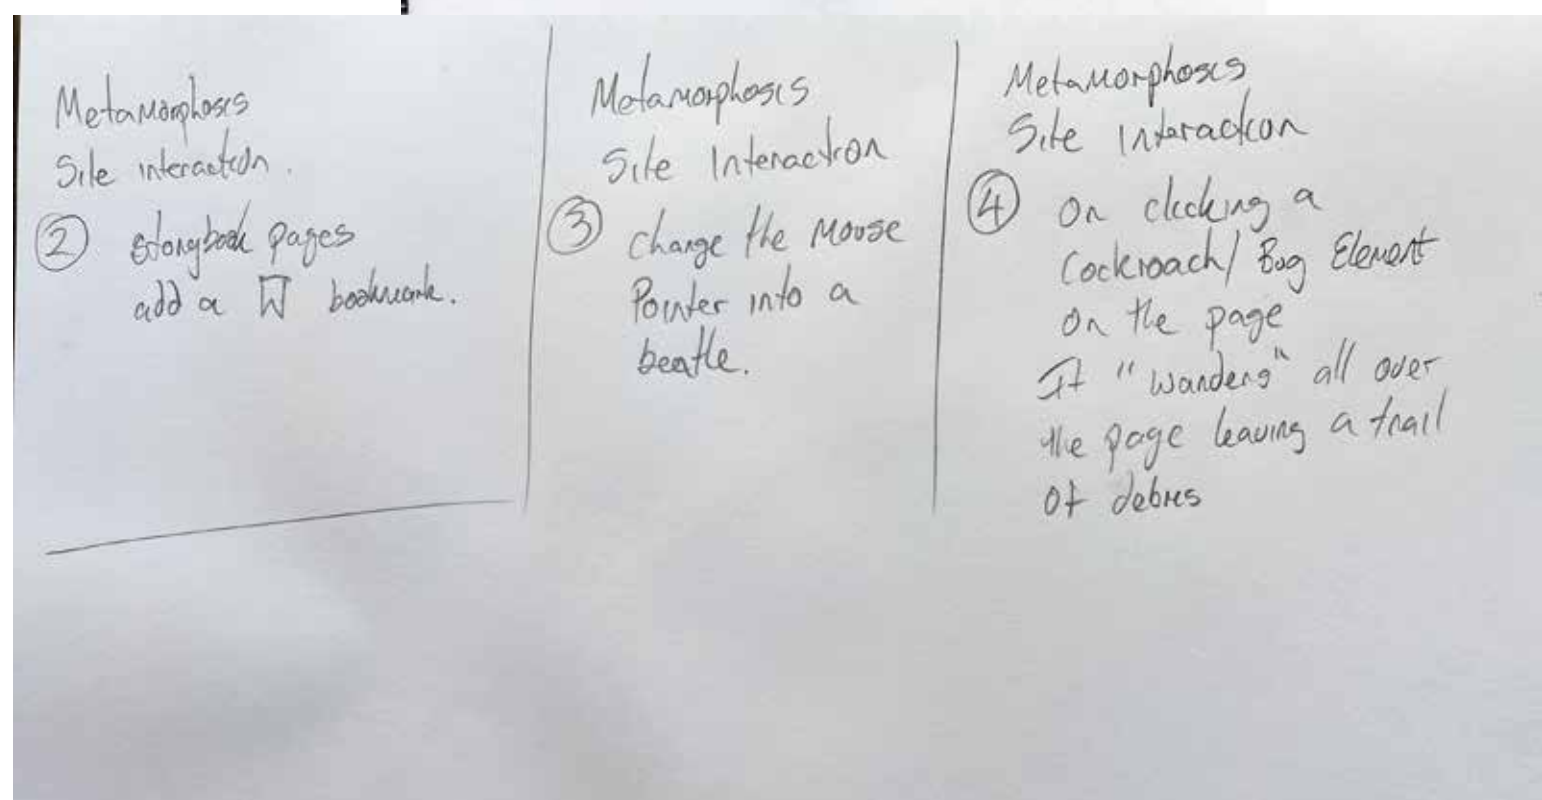 Metamorphosis
Site interaction.
2 storybook pages
add a bookmark.
Metamorphosis
Site Interaction
3 change the Mouse
Pointer into a
beatle.
Metamorphosis
Site Interaction
4 On clicking a
Cockroach/ Bug Element
on the page
It "wanders" all over
the page leaving a trail
of debris